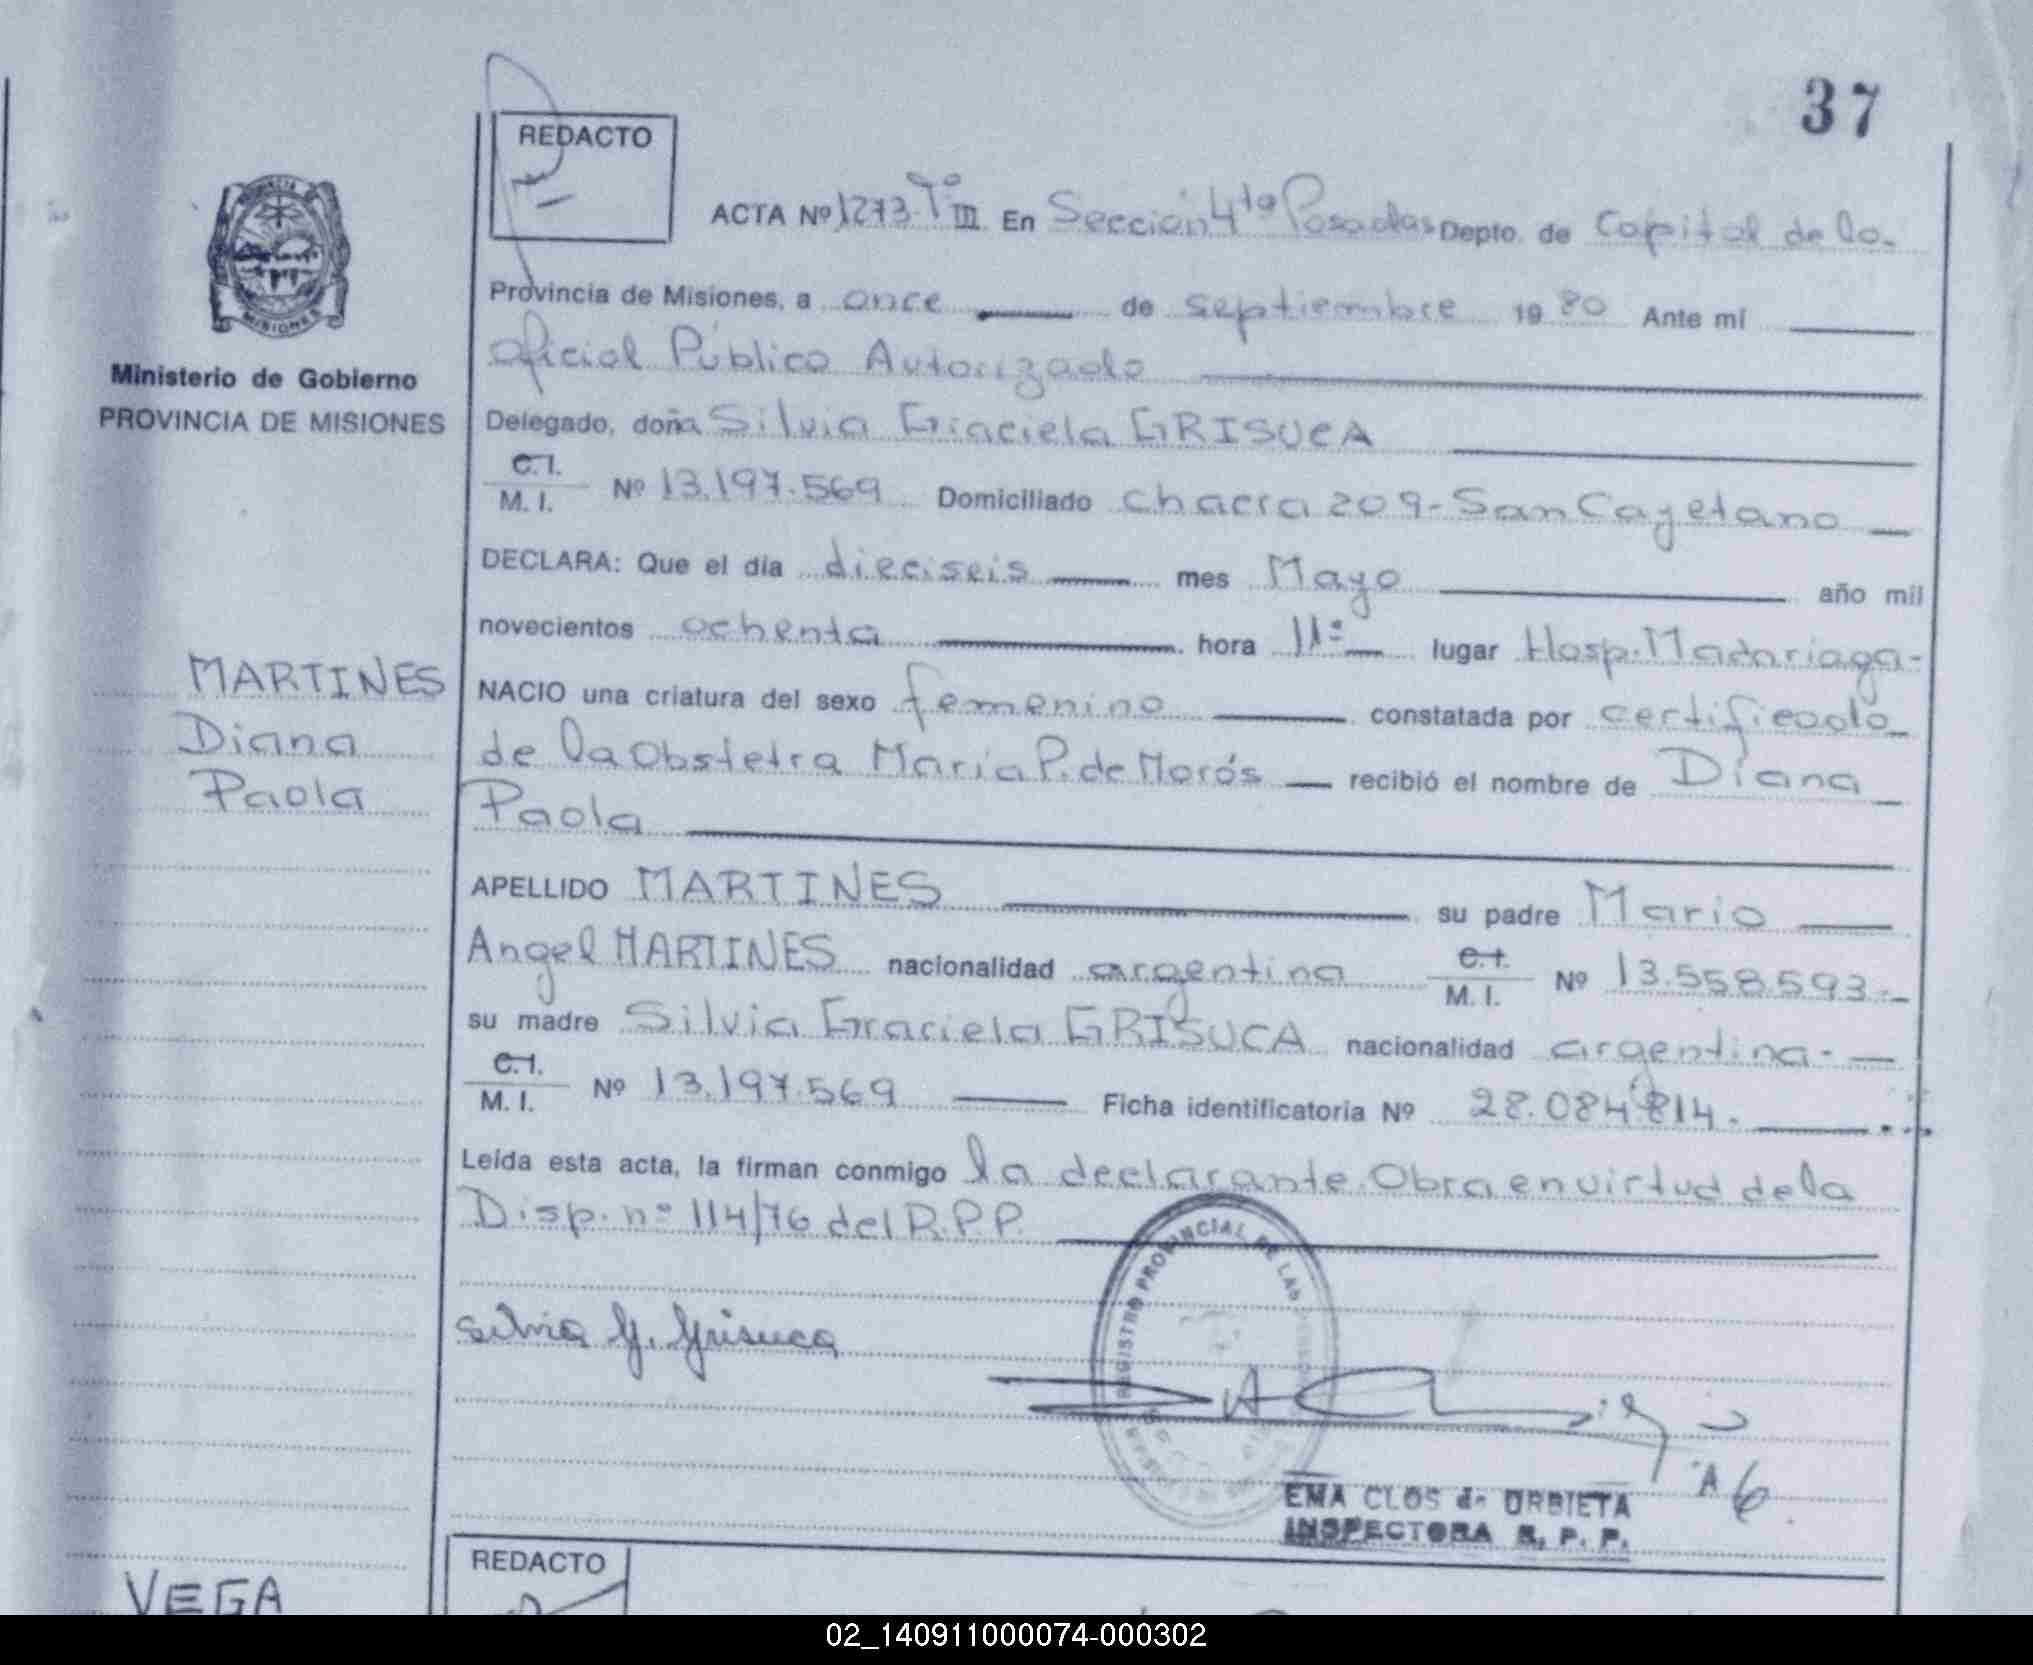 37
REDACTO
ACTA Nº 1273 Tº III En Sección 4ta Posadas Depto. de Capital de la
Provincia de Misiones, a once de septiembre 1980 Ante mí
Oficial Público Autorizado
Delegado, doña Silvia Graciela GRISUCA
C.I.
M. I. Nº 13.197.569 Domiciliado Chacra 209-San Cayetano
DECLARA: Que el día dieciseis mes Mayo año mil
novecientos ochenta hora 11º lugar Hosp. Madariaga-
NACIO una criatura del sexo femenino constatada por certificado
de la Obstetra María P. de Morós recibió el nombre de Diana
Paola
APELLIDO MARTINES su padre Mario
Angel MARTINES nacionalidad argentina C.I.
M. I. Nº 13.558.593.-
su madre Silvia Graciela GRISUCA nacionalidad argentina.-
C.I.
M. I. Nº 13.197.569 Ficha identificatoria Nº 28.084.814.
Leída esta acta, la firman conmigo la declarante. Obra en virtud de la
Disp. nº 114/76 del R.P.P.
Silvia G. Grisuca
REGISTRO PROVINCIAL DE LAS
EMA CLOS de URBIETA
INSPECTORA R. P. P.
MISIONES
Ministerio de Gobierno
PROVINCIA DE MISIONES
MARTINES
Diana
Paola
VEGA
REDACTO
02_140911000074-000302